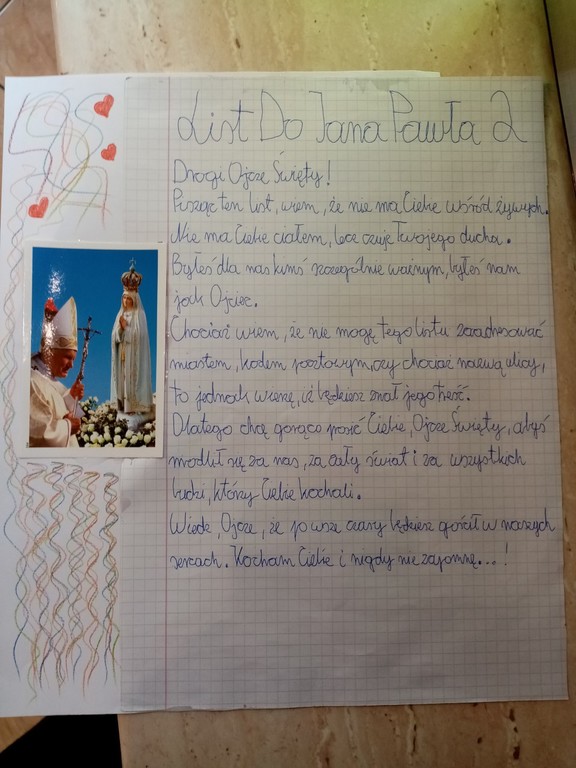 List Do Jana Pawła 2
Drogi Ojcze Święty!
Pisząc ten list, wiem, że nie ma Ciebie wśród żywych.
Nie ma Ciebie ciałem, lecz czuję Twojego ducha.
Byłeś dla nas kimś szczególnie ważnym, byłeś nam
jak Ojciec.
Chociaż wiem, że nie mogę tego listu zaadresować
miastem, kodem pocztowym, czy chociaż nazwą ulicy,
to jednak wierzę, iż będziesz znał jego treść.
Dlatego chcę gorąco prosić Ciebie, Ojcze Święty, abyś
modlił się za nas, za cały świat i za wszystkich
ludzi, którzy Ciebie kochali.
Wiedz, Ojcze, że po wsze czasy będziesz gościł w naszych
sercach. Kocham Ciebie i nigdy nie zapomnę...!